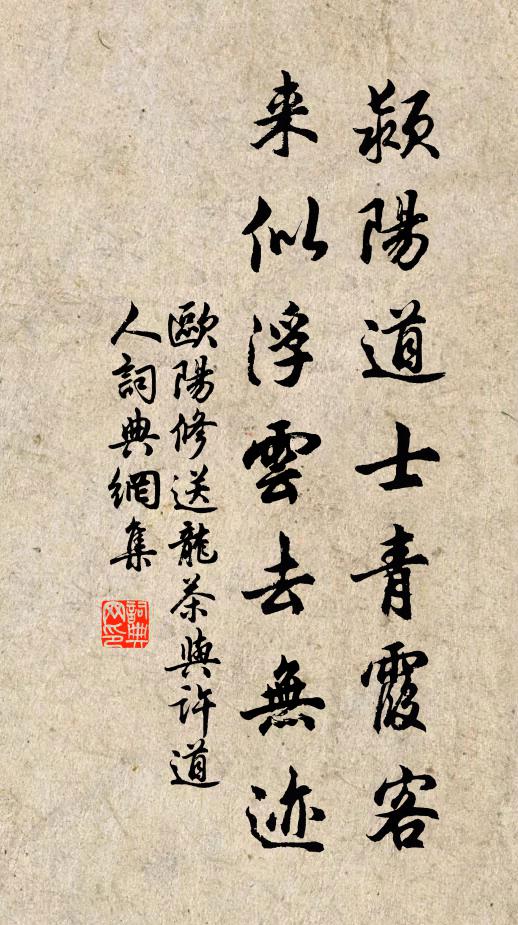 颍陽道士青霞客
来似浮雲去無迹
歐陽修送龍茶與許道
人詞典網集
詞典网印